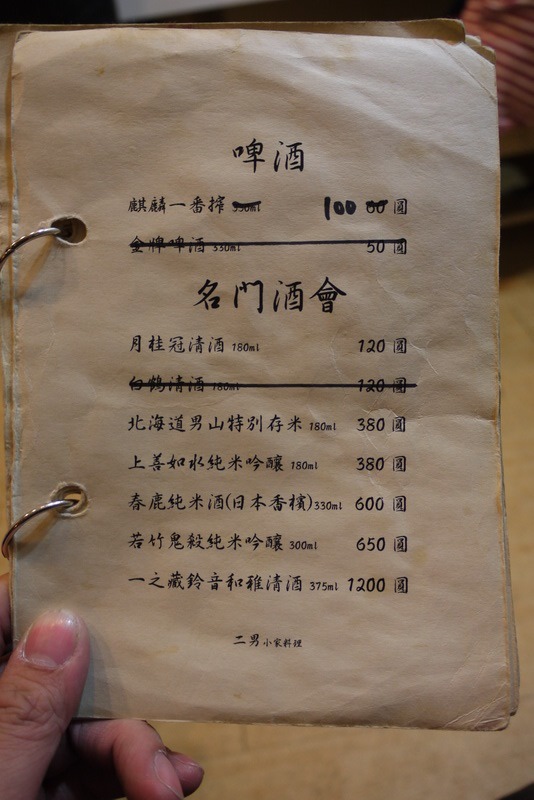 啤酒
麒麟一番搾 350ml 100 60 圓
金牌啤酒 330ml 50 圓
名門酒會
月桂冠清酒 180ml 120 圓
白鶴清酒 180ml 120 圓
北海道男山特別存米 180ml 380 圓
上善如水純米吟釀 180ml 380 圓
春鹿純米酒(日本香檳)330ml 600 圓
若竹鬼殺純米吟釀 300ml 650 圓
一之藏鈴音和雅清酒 375ml 1200 圓
二男小家料理